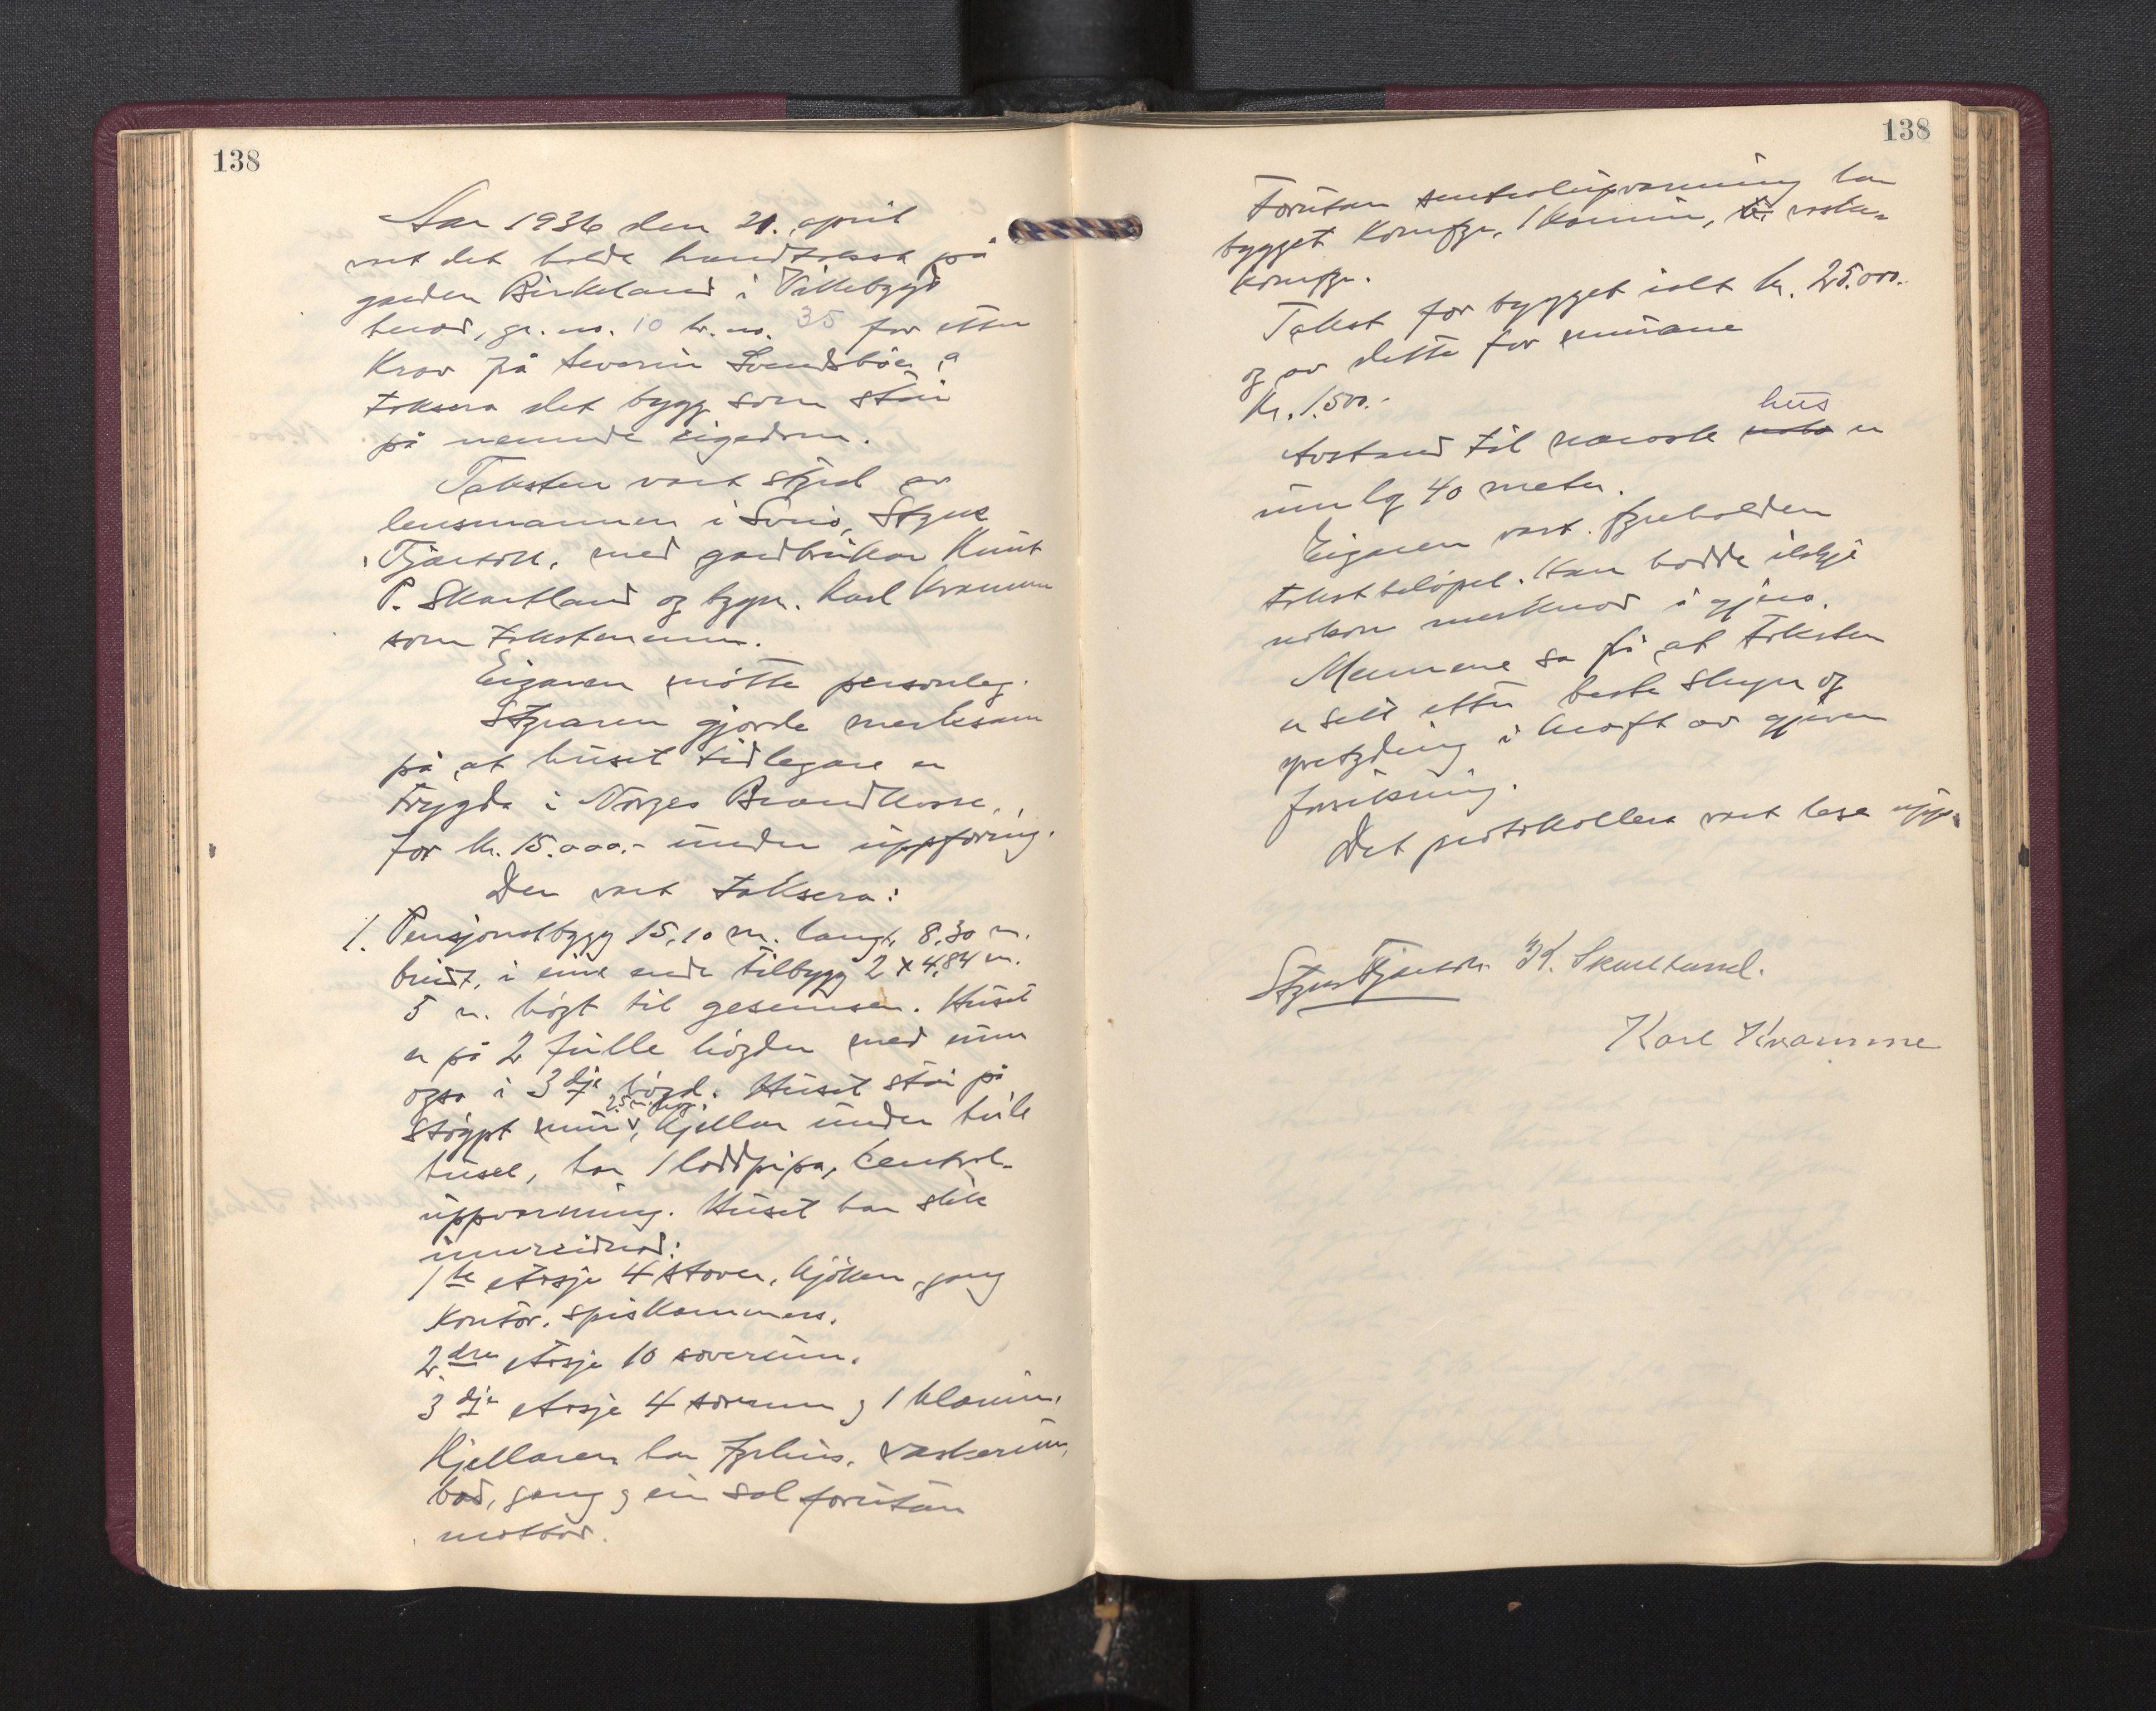 138
Aar 1936 den 21. april
vart det halde brandtakst på
garden Birkeland i Vikebygd
herad, gr. no. 10 br. no. 35 for etter
Krav på Severin Svendsbøe å
taksera det bygg som står
på nemnde eigedom.
Taksten vart styrd av
lensmannen i Sveio, Styrk
Fjærtoft, med gardbrukar Knut
P. Skartland og bygm. Karl Kvamme
som takstmenn.
Eigaren møtte personleg.
Styraren gjorde merksam
på at huset tidlegare er
trygda i Norges Brandkasse,
for kr. 15.000.- under uppføring.
Der vart taksera:
1. Pensjonatbygg 15,10 m. langt, 8,30 m.
breidt, i eine ende tilbygg 2 x 4,84 m.
5 m. høgt til gesemsen. Huset
er på 2 fulle høgder med rum
ogso i 3dje høgd. Huset står på
2.5 m. høg.
støypt mur, kjellar under heile
huset, har 1 loddpipa, Central-
uppvarming. Huset har slik
innreidnad:
1ste etasje 4 stover, kjøken, gang
Kontor, spiskammers.
2dre etasje 10 soverum.
3dje etasje 4 soverum og 1 klorum.
Kjellaren har fyrhus, vaskerum,
bad, gang og ein sal forutan
matbod.
138
Forutan sentraluppvarming har
bygget Komfyr, 1 Kamin, vaske-
komfyr.
Takst for bygget ialt kr. 25.000.-
og av dette for murane
Kr. 1.500.-
hus
Avstand til næraste er
umlag 40 meter.
Eigaren vart fyreholden
takstbeløpet. Han hadde ikkje
nokon merknad å gjera.
Mennene sa frå at taksten
er sett etter beste skyn og
yvetyding i kraft av gjeven
forsikring.
Det protokollera vart lese upp.
Styrk Fjærtoft K. Skartland.
Karl Kvamme